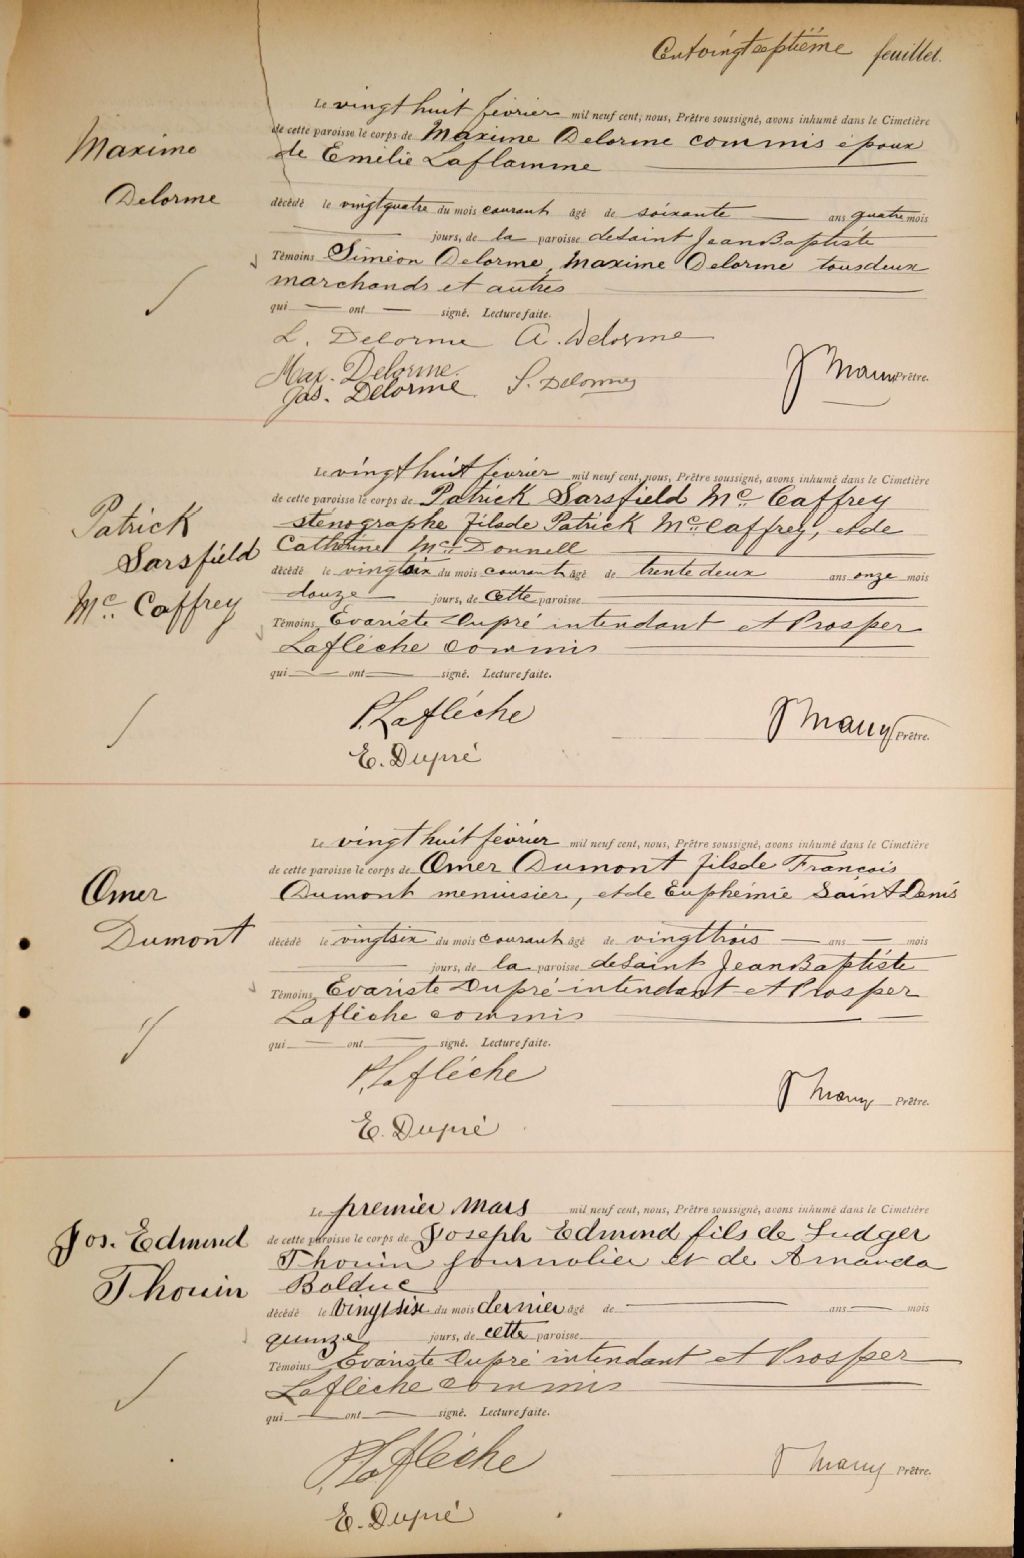 Centvingtseptième feuillet.
Le vingt huit février mil neuf cent, nous, Prêtre soussigné, avons inhumé dans le Cimetière
Maxime
de cette paroisse le corps de Maxime Delorme commis époux
de Emélie Laflamme
Delorme
décédé le vingtquatre du mois courant âgé de soixante ans quatre mois
jours, de la paroisse de Saint Jean Baptiste
Témoins Siméon Delorme, Maxime Delorme tousdeux
marchands et autres
qui ont signé. Lecture faite.
L. Delorme A. Delorme
Max. Delorme.
Jos. Delorme S. Delorme
Prêtre.
Le vingt huit février mil neuf cent, nous, Prêtre soussigné, avons inhumé dans le Cimetière
Patrick
de cette paroisse le corps de Patrick Sarsfield Mc Caffrey
sténographe fils de Patrick Mc Caffrey, et de
Sarsfield
Catherine Mc Donnell
décédé le vingtsix du mois courant âgé de trente deux ans onze mois
Mc Caffrey
douze jours, de cette paroisse
Témoins Evariste Dupré intendant et Prosper
Laflèche commis
qui ont signé. Lecture faite.
P. Laflèche
Prêtre.
E. Dupré
Le vingt huit février mil neuf cent, nous, Prêtre soussigné, avons inhumé dans le Cimetière
de cette paroisse le corps de Omer Dumont fils de François
Omer
Dumont menuisier, et de Euphémie Saint Denis
Dumont
décédé le vingtsix du mois courant âgé de vingttrois ans mois
jours, de la paroisse de Saint Jean Baptiste
Témoins Evariste Dupré intendant et Prosper
Laflèche commis
qui ont signé. Lecture faite.
P. Laflèche
Prêtre.
E. Dupré
Le premier Mars mil neuf cent, nous, Prêtre soussigné, avons inhumé dans le Cimetière
Jos. Edmund
de cette paroisse le corps de Joseph Edmund fils de Ludger
Thouin journalier et de Amanda
Thouin
Bolduc
décédé le vingtsix du mois dernier âgé de ans mois
quinze jours, de cette paroisse
Témoins Evariste Dupré intendant et Prosper
Laflèche commis
qui ont signé. Lecture faite.
P. Laflèche
Prêtre.
E. Dupré